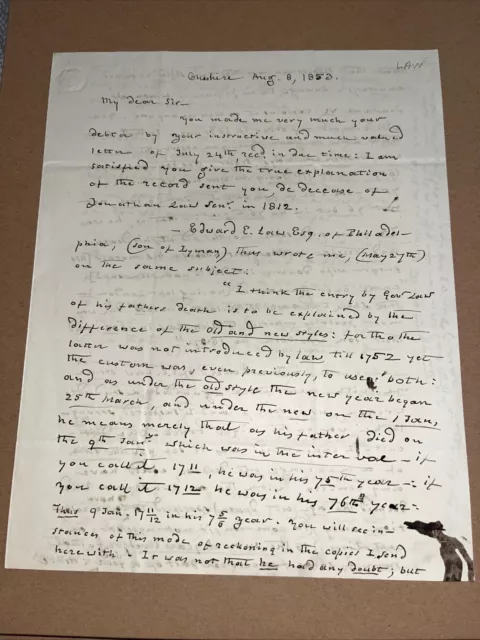 LAW
Cheshire Aug. 8, 1853.
My dear Sir—
You made me very much your
debtor by your instructive and much valued
letter of July 24th recd. in due time: I am
satisfied you give the true explanation
of the record sent you, de decease of
Jonathan Law Senr. in 1812.
— Edward E. Law Esq. of Philadel-
phia, (son of Lyman) thus wrote me, (May 27th)
on the same subject:
"I think the entry by Govr Law
of his fathers death is to be explained by the
difference of the old and new styles: for tho, the
latter was not introduced by law till 1752 yet
the custom was, even previously, to use both:
and as under the old style the new year began
25th March, and under the new on the 1 Jan,
he means merely that as his father died on
the 9th Jany which was in the interval — if
you call it 1711 he was in his 75th year —: if
you call it 1712 he was in his 76th year —
Thus 9 Jan. 17 11/12 in his 7 5/6 year. You will see in-
stances of this mode of reckoning in the copies I send
herewith. It was not that he had any doubt; but